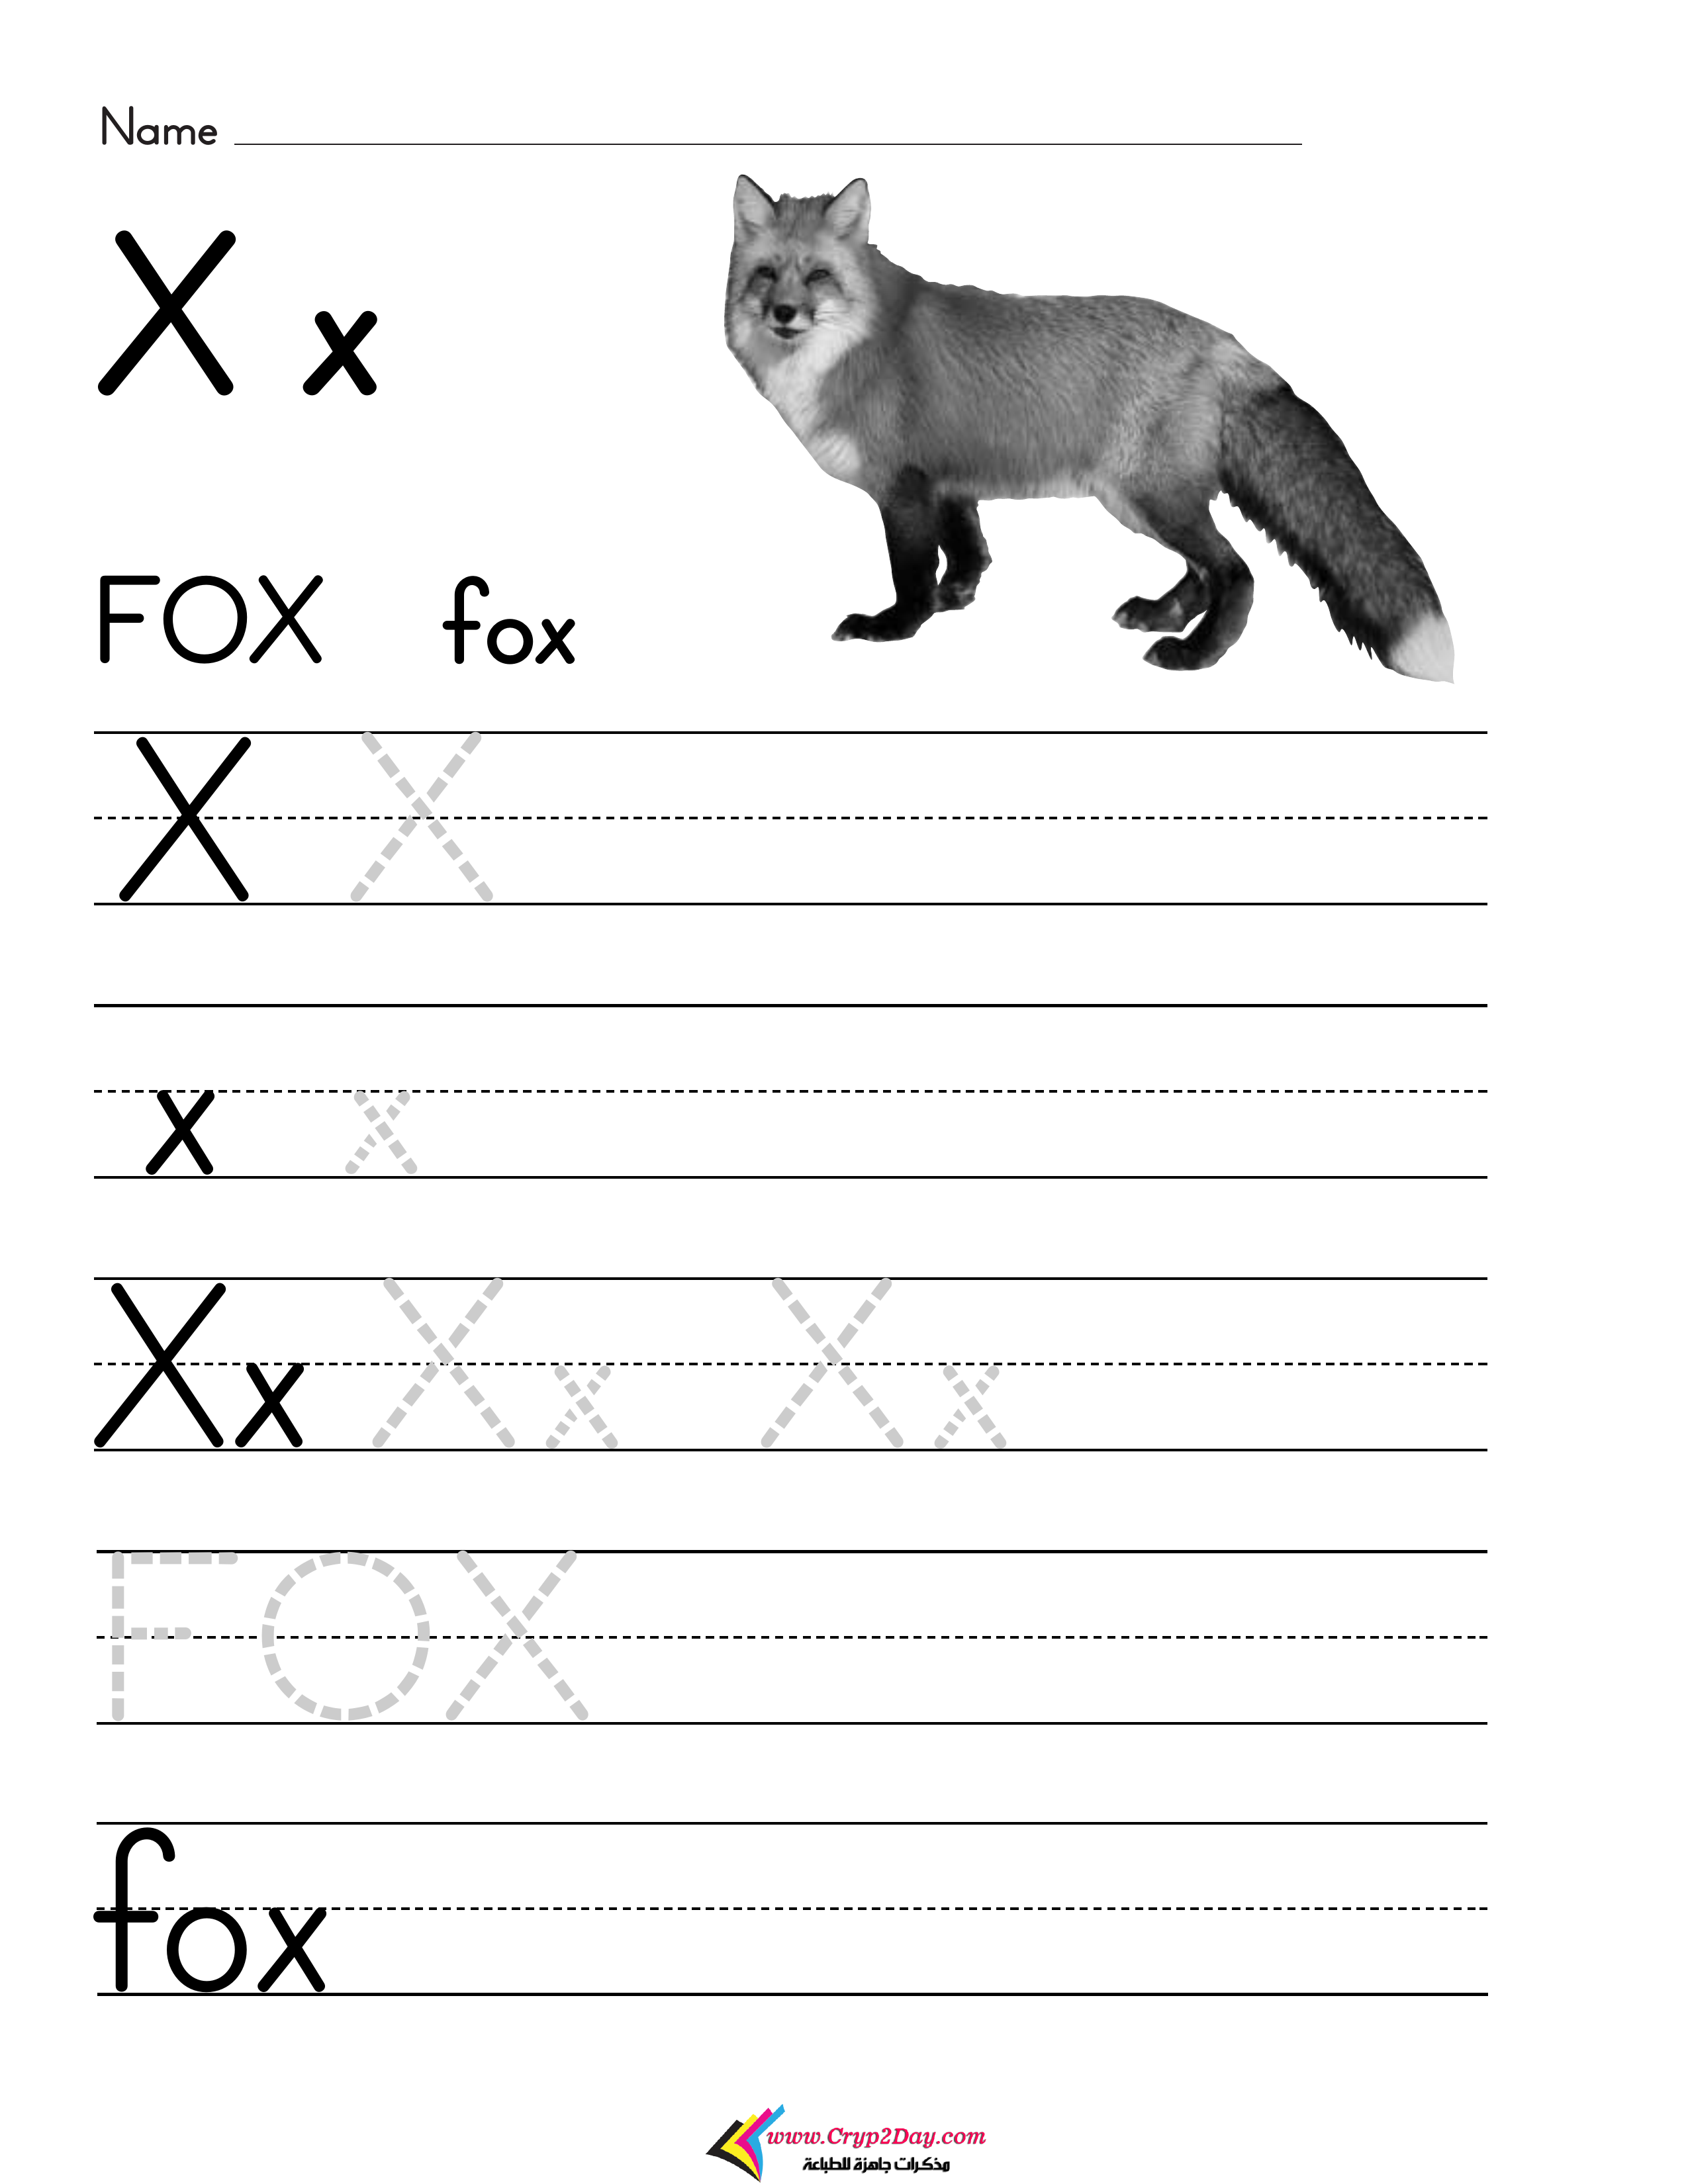 Name
X x
FOX fox
X X
x x
Xx Xx Xx
FOX
fox
www.Cryp2Day.com
مذكرات جاهزة للطباعة